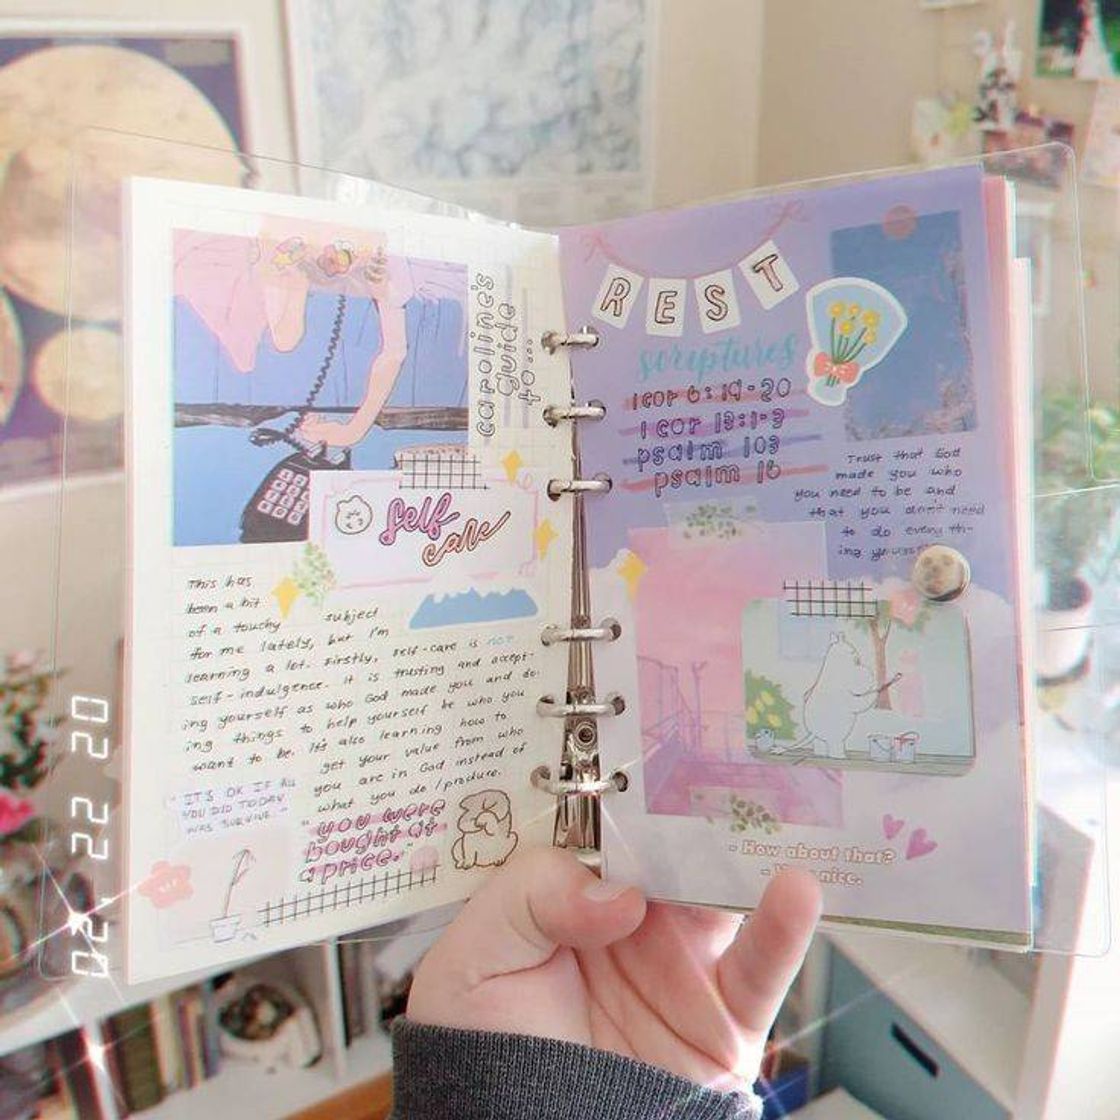 caroline's
guide
to...
self
care
This has
been a bit
of a touchy subject
for me lately, but I'm
learning a lot. Firstly, self-care is not
self-indulgence. it is trusting and accept-
ing yourself as who God made you and do-
ing things to help yourself be who you
want to be. It's also learning how to
get your value from who
you are in God instead of
what you do / produce.
"IT'S OK IF ALL
YOU DID TODAY
WAS SURVIVE."
"you were
bought at
a price."
REST
scriptures
1 cor 6:19-20
1 cor 13:1-3
psalm 103
psalm 16
Trust that God
made you who
you need to be and
that you don't need
to do every th-
ing
- How about that?
nice.
02. 22 20